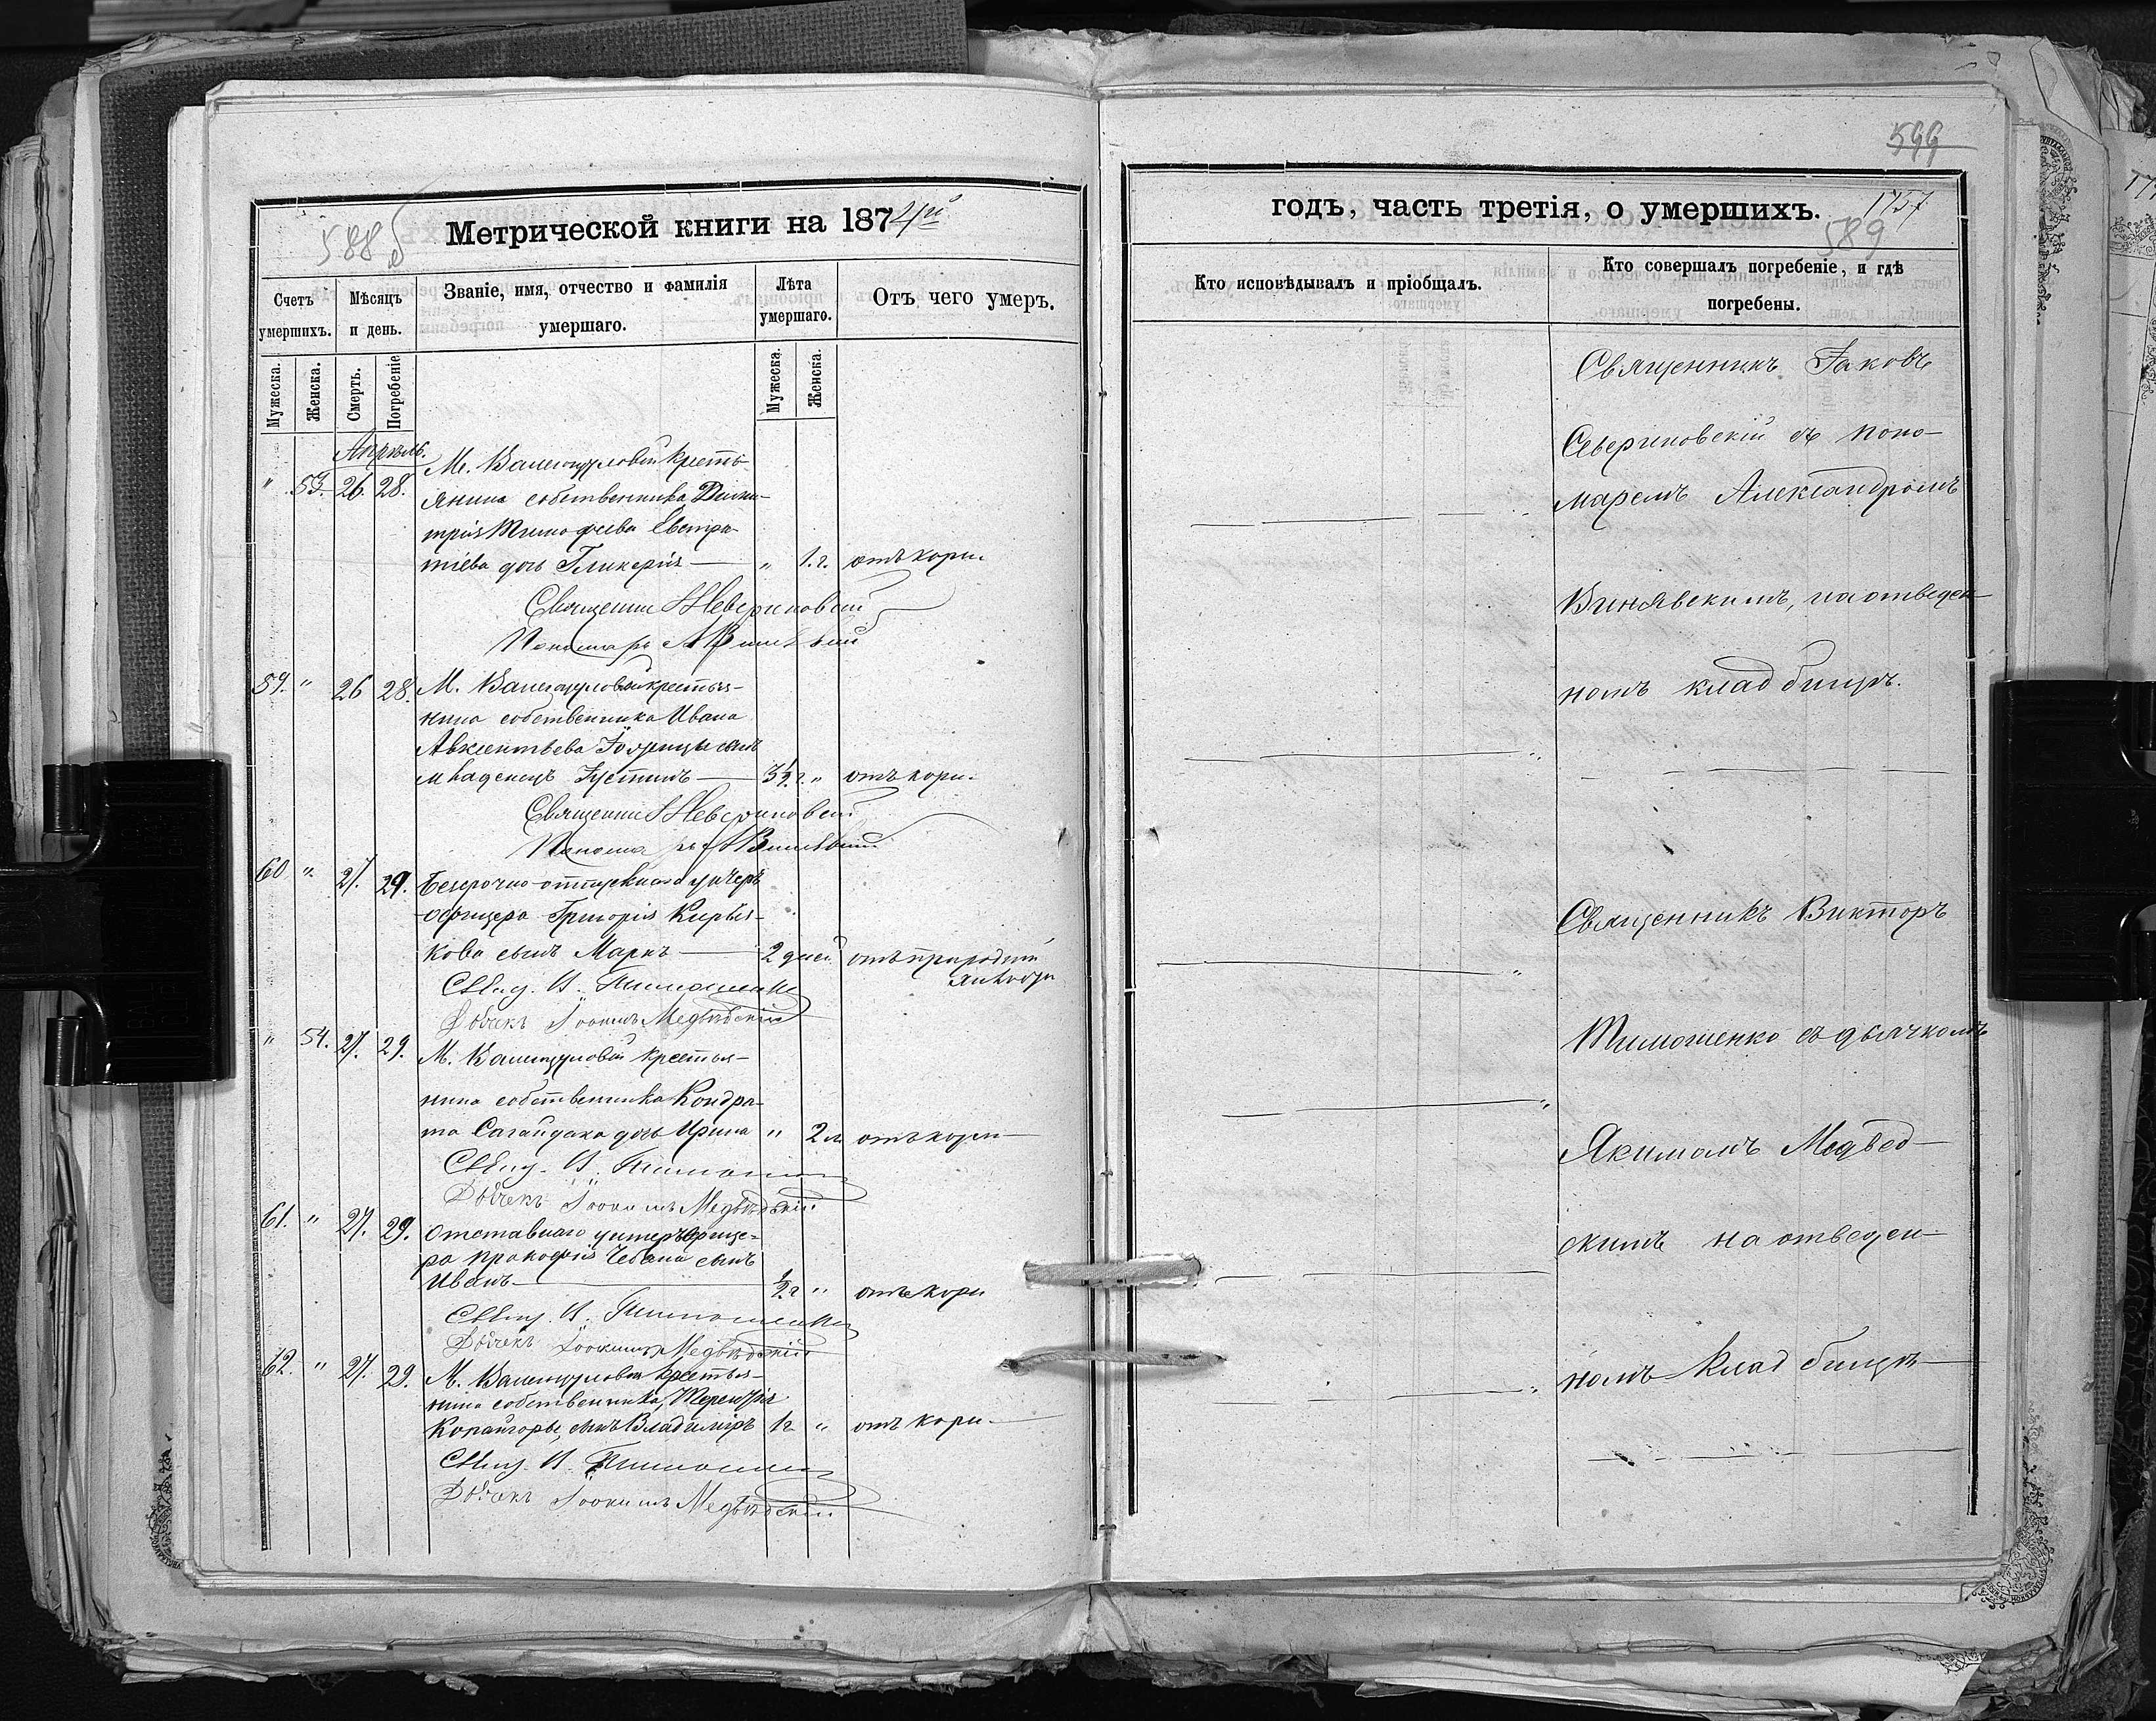 588 б
Метрической книги на 1874й
Счетъ умершихъ.
Мѣсяцъ и день.
Званіе, имя, отчество и фамилія умершаго.
Лѣта умершаго.
Отъ чего умеръ.
Мужеска.
Женска.
Смерть.
Погребеніе
Мужеска.
Женска.
Апрѣль.
М. Валегоцуловой кресть-
" 53. 26. 28. янина собственника Дими-
трія Тимофеева Евстра-
тіева дочь Гликерія — " 1.г. отъ кори.
Священни Севериновскій
Пономарь А Винявскій
59. " 26 28. М. Валегоцуловой крестья-
нина собственника Ивана
Авксентьева сынъ
младенецъ Іустинъ — 3½ г. " отъ кори.
Священни Севериновскій
Пономарь А Винявскій
60 ". 27. 29. Безсрочно-отпускнаго унтеръ
-офицера Григорія Кирья-
кова сынъ Маркъ — 2 дней отъ природной
Свящ. В. Тимошенко
Дьячекъ Іоокимъ Медвѣдскій
" 54. 27. 29. М. Валегоцуловой крестья-
нина собственника Кондра-
та Сагайдака дочь Ирина " 2 л. отъ кори —
Свящ. В. Тимошенко
Дьячекъ Іоокимъ Медвѣдскій
61. " 27. 29. Отставнаго унтеръ офице-
ра Прокофія Чебана сынъ
Иванъ — ½ г " отъ кори
Свящ. В. Тимошенко
Дьячекъ Іоокимъ Медвѣдскій
62. " 27. 29. М. Валегоцуловой крестья-
нина собственника, Терентія
сынъ Владиміръ 1 г " отъ кори.
Свящ. В. Тимошенко
Дьячекъ Іоокимъ Медвѣдскій
599
годъ, часть третія, о умершихъ.
1757
589
Кто исповѣдывалъ и пріобщалъ.
Кто совершалъ погребеніе, и гдѣ
погребены.
Священникъ Іаковъ
Севериновскій съ поно-
маремъ Александромъ
Винявскимъ, на отведен-
номъ кладбищѣ.
Священникъ Викторъ
Тимошенко съ дьячкомъ
Якимомъ Медвед-
скимъ на отведен-
номъ кладбищѣ —